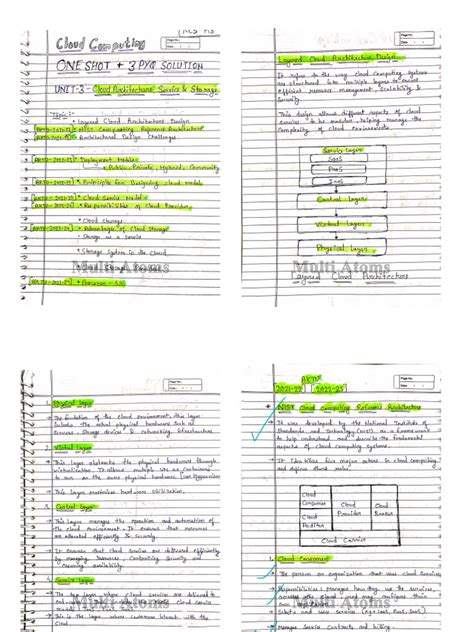 Cloud Computing
ONE SHOT + 3 PYQ SOLUTION
UNIT-3 - Cloud Architecture, Service & Storage
Topic:-
• Layered Cloud Architecture Design
• NIST Computing Reference Architecture
• Architecture Design Challenges
• Deployment Models
• Public, Private, Hybrid, Community
• Principles for Designing Cloud models
• Cloud Service models
• Responsibilities of Cloud Provider
• Cloud Storage
• Advantages of Cloud Storage
• Storage as a Service
• Storage System in the Cloud
Cloud Storage Providers
Multi Atoms
• Amazon - S3
Layered Cloud Architecture Design
It refers to the way cloud computing systems
are structured into multiple layers to ensure
efficient resource management, scalability &
security
This design allows different aspects of cloud
services to be modular, helping manage the
complexity of cloud environments.
Service Layer
SaaS
PaaS
IaaS
Control Layer
Virtual Layer
Physical Layer
Multi Atoms
Layered Cloud Architecture
1. Physical Layer
→ The foundation of the cloud environment, this layer
include the actual physical hardware such as
servers, storage devices & networking infrastructure
2. Virtual Layer
→ This layer abstracts the physical hardware through
virtualization. It allows multiple VMs or containers
to run on the same physical hardware.
→ This layer maximizes hardware utilization.
3. Control Layer
→ This layer manages the operation and automation of
the cloud environment. It ensures that resources
are allocated efficiently & securely.
→ It ensures that cloud services are delivered efficiently
by managing resources, maintaining security and
ensuring availability.
4. Service Layer
→ The top layer where cloud services are delivered to
Multi Atoms
→ This is the layer where customers interact with
the cloud
AKTU
2021-22 2022-23
* NIST Cloud Computing Reference Architecture
→ It was developed by the National Institute of
Standards and Technology (NIST) as a framework
to help understand and describe the fundamental
aspects of cloud computing systems
→ It identifies five major actors in cloud computing
and defines their roles.
Cloud Consumer
Cloud Provider
Cloud Broker
Cloud Auditor
Cloud Carrier
1. Cloud Consumer
→ The person or organization that uses cloud services
→ Responsibilities: Manages how they use the services,
Multi Atoms